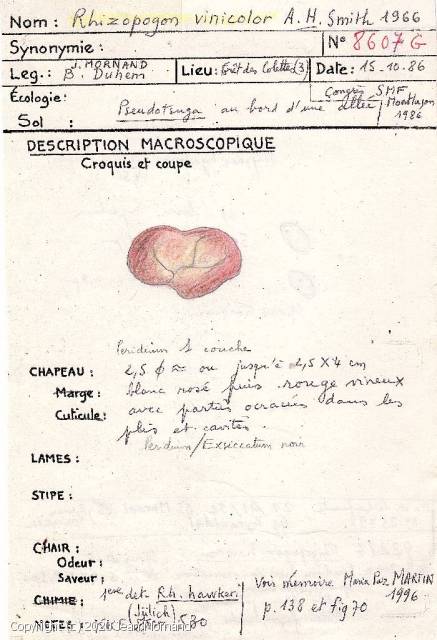 Nom : Rhizopogon vinicolor A.H. Smith 1966
Synonymie : N° 8607 G
Leg. : J. MORNAND B. Duhem Lieu : Forêt des Colettes (3) Date : 15.10.86
Écologie : Pseudotsuga au bord d'une allée
Congrès SMF Montluçon 1986
Sol :
DESCRIPTION MACROSCOPIQUE
Croquis et coupe
Peridium 1 couche
CHAPEAU : 2,5 ϕ ≈ ou jusqu'à 2,5 X 4 cm
Marge : blanc rosé puis rouge vineux
Cuticule : avec parties ocracées dans les
plis et cavités.
Peridium/Exsiccatum noir
LAMES :
STIPE :
CHAIR :
Odeur :
Saveur :
CHIMIE : 1ere det. R.h. hawkeri
(Jülich)
NOTES : 530
Voir mémoire Maria Paz MARTIN
1996
p. 138 et fig 70